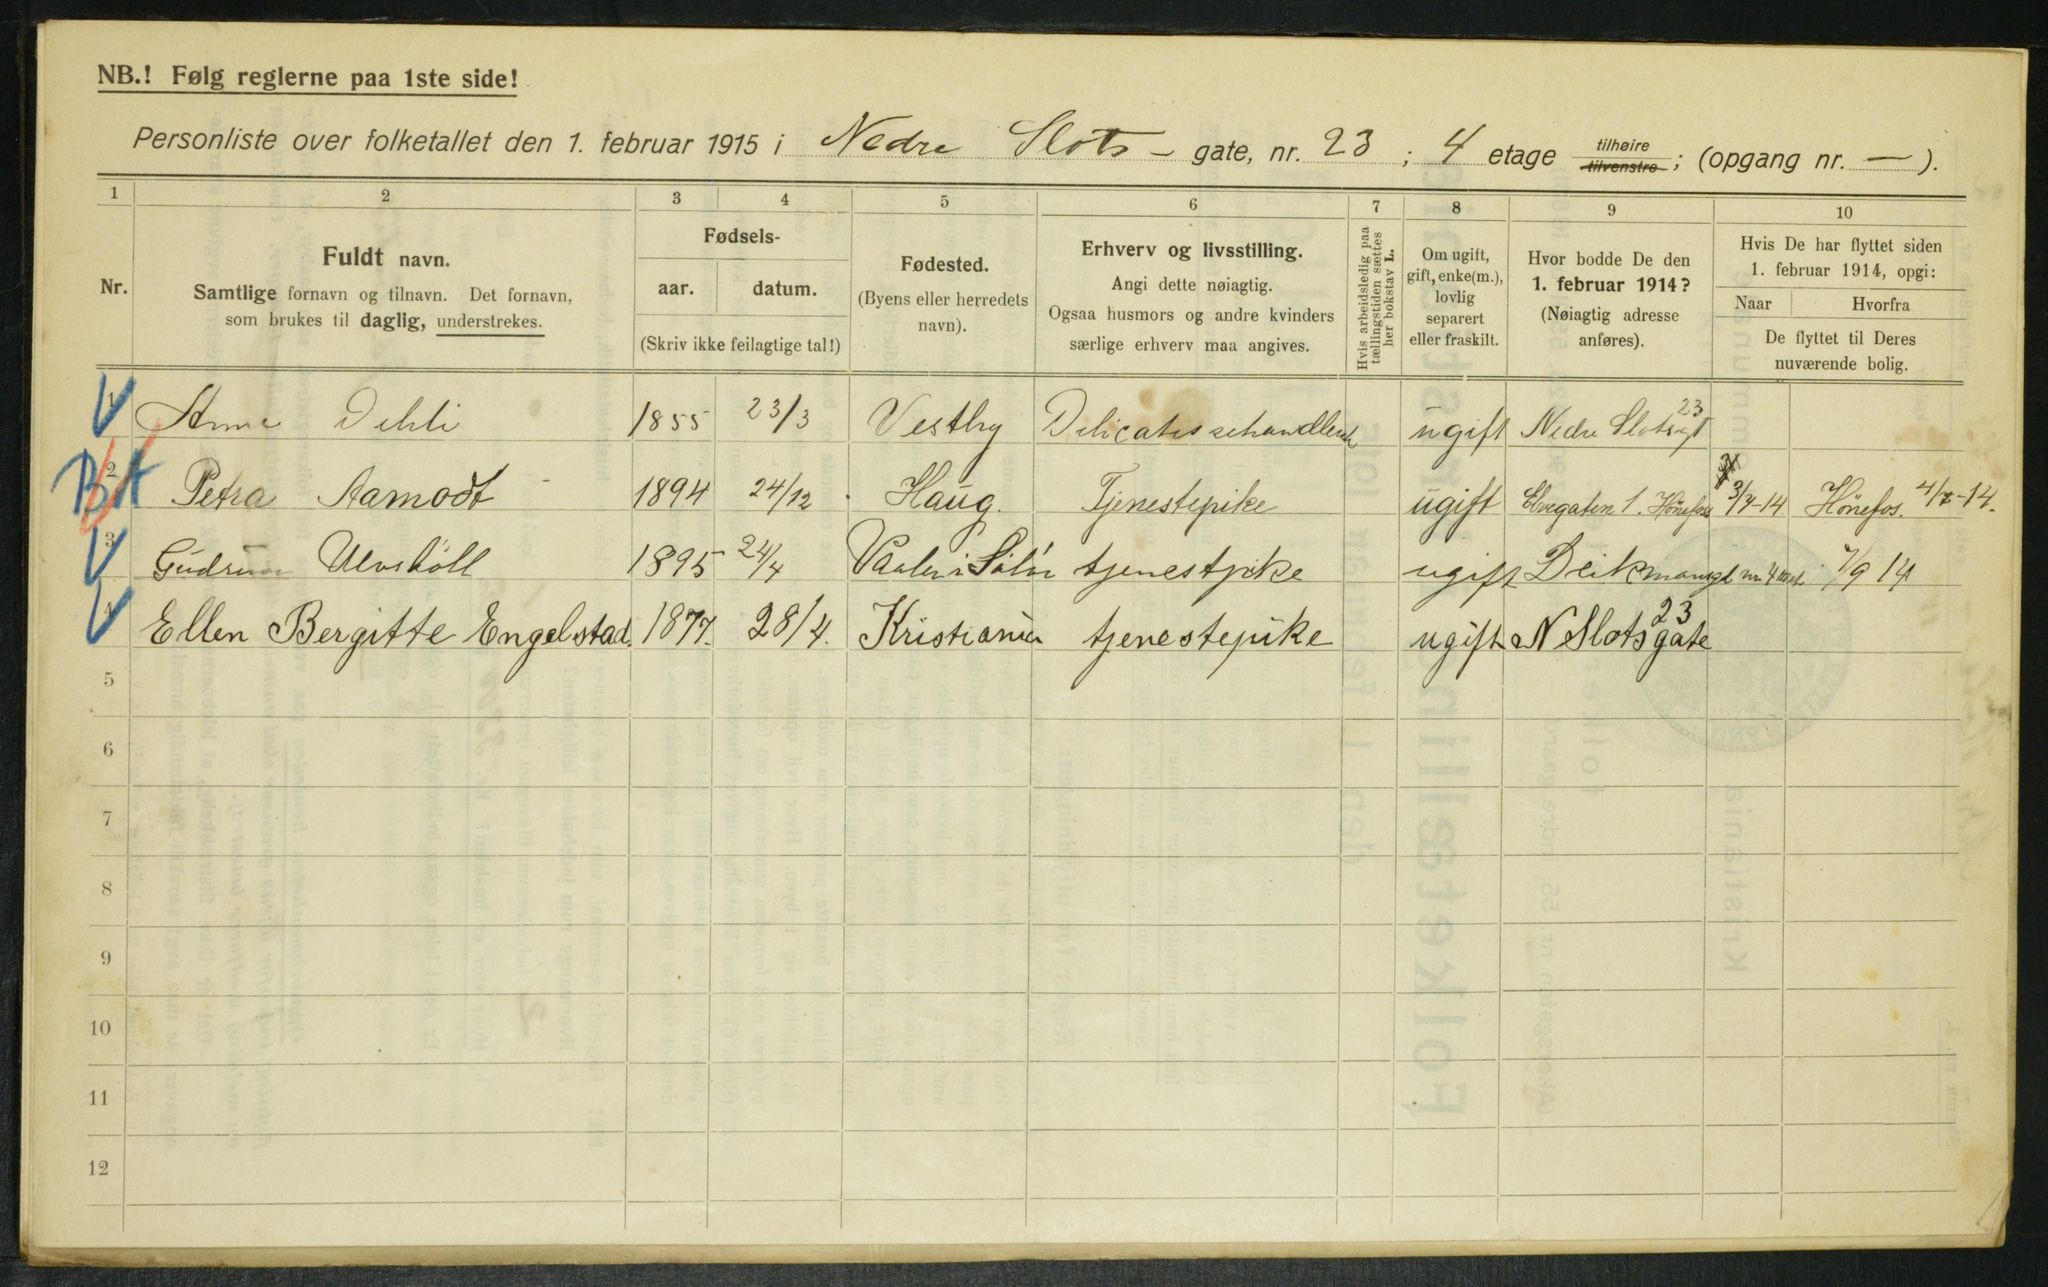 NB.! Følg reglerne paa 1ste side!
Personliste over folketallet den 1. februar 1915 i Nedre Slots - gate, nr. 23 ; 4 etage tilhøire tilvenstre ; (opgang nr. — ).
1 2 3 4 5 6 7 8 9 10
Nr.
Fuldt navn.
Samtlige fornavn og tilnavn. Det fornavn,
som brukes til daglig, understrekes.
Fødsels-
aar. datum.
(Skriv ikke feilagtige tal!)
Fødested.
(Byens eller herredets
navn).
Erhverv og livsstilling.
Angi dette nøiagtig.
Ogsaa husmors og andre kvinders
særlige erhverv maa angives.
Hvis arbeidsledig paa
tællingstiden sættes
her bokstav L.
Om ugift,
gift, enke(m.),
lovlig
separert
eller fraskilt.
Hvor bodde De den
1. februar 1914?
(Nøiagtig adresse
anføres).
Hvis De har flyttet siden
1. februar 1914, opgi:
Naar Hvorfra
De flyttet til Deres
nuværende bolig.
1 Anne Dehli 1855 23/3 Vestby ugift Nedre Slotsgt 23
2 Petra Aamodt 1894 24/12 Haug. Tjenestepike ugift Elvegaten 1. Hønefoss 3/7-14 Hønefos. 4/7-14.
3 Gudrun 1895 24/4 tjenestpike ugift 1/9 14
4 Ellen Bergitte Engelstad. 1877. 28/4. Kristiania tjenestepike ugift N Slotsgate 23
5
6
7
8
9
10
11
12